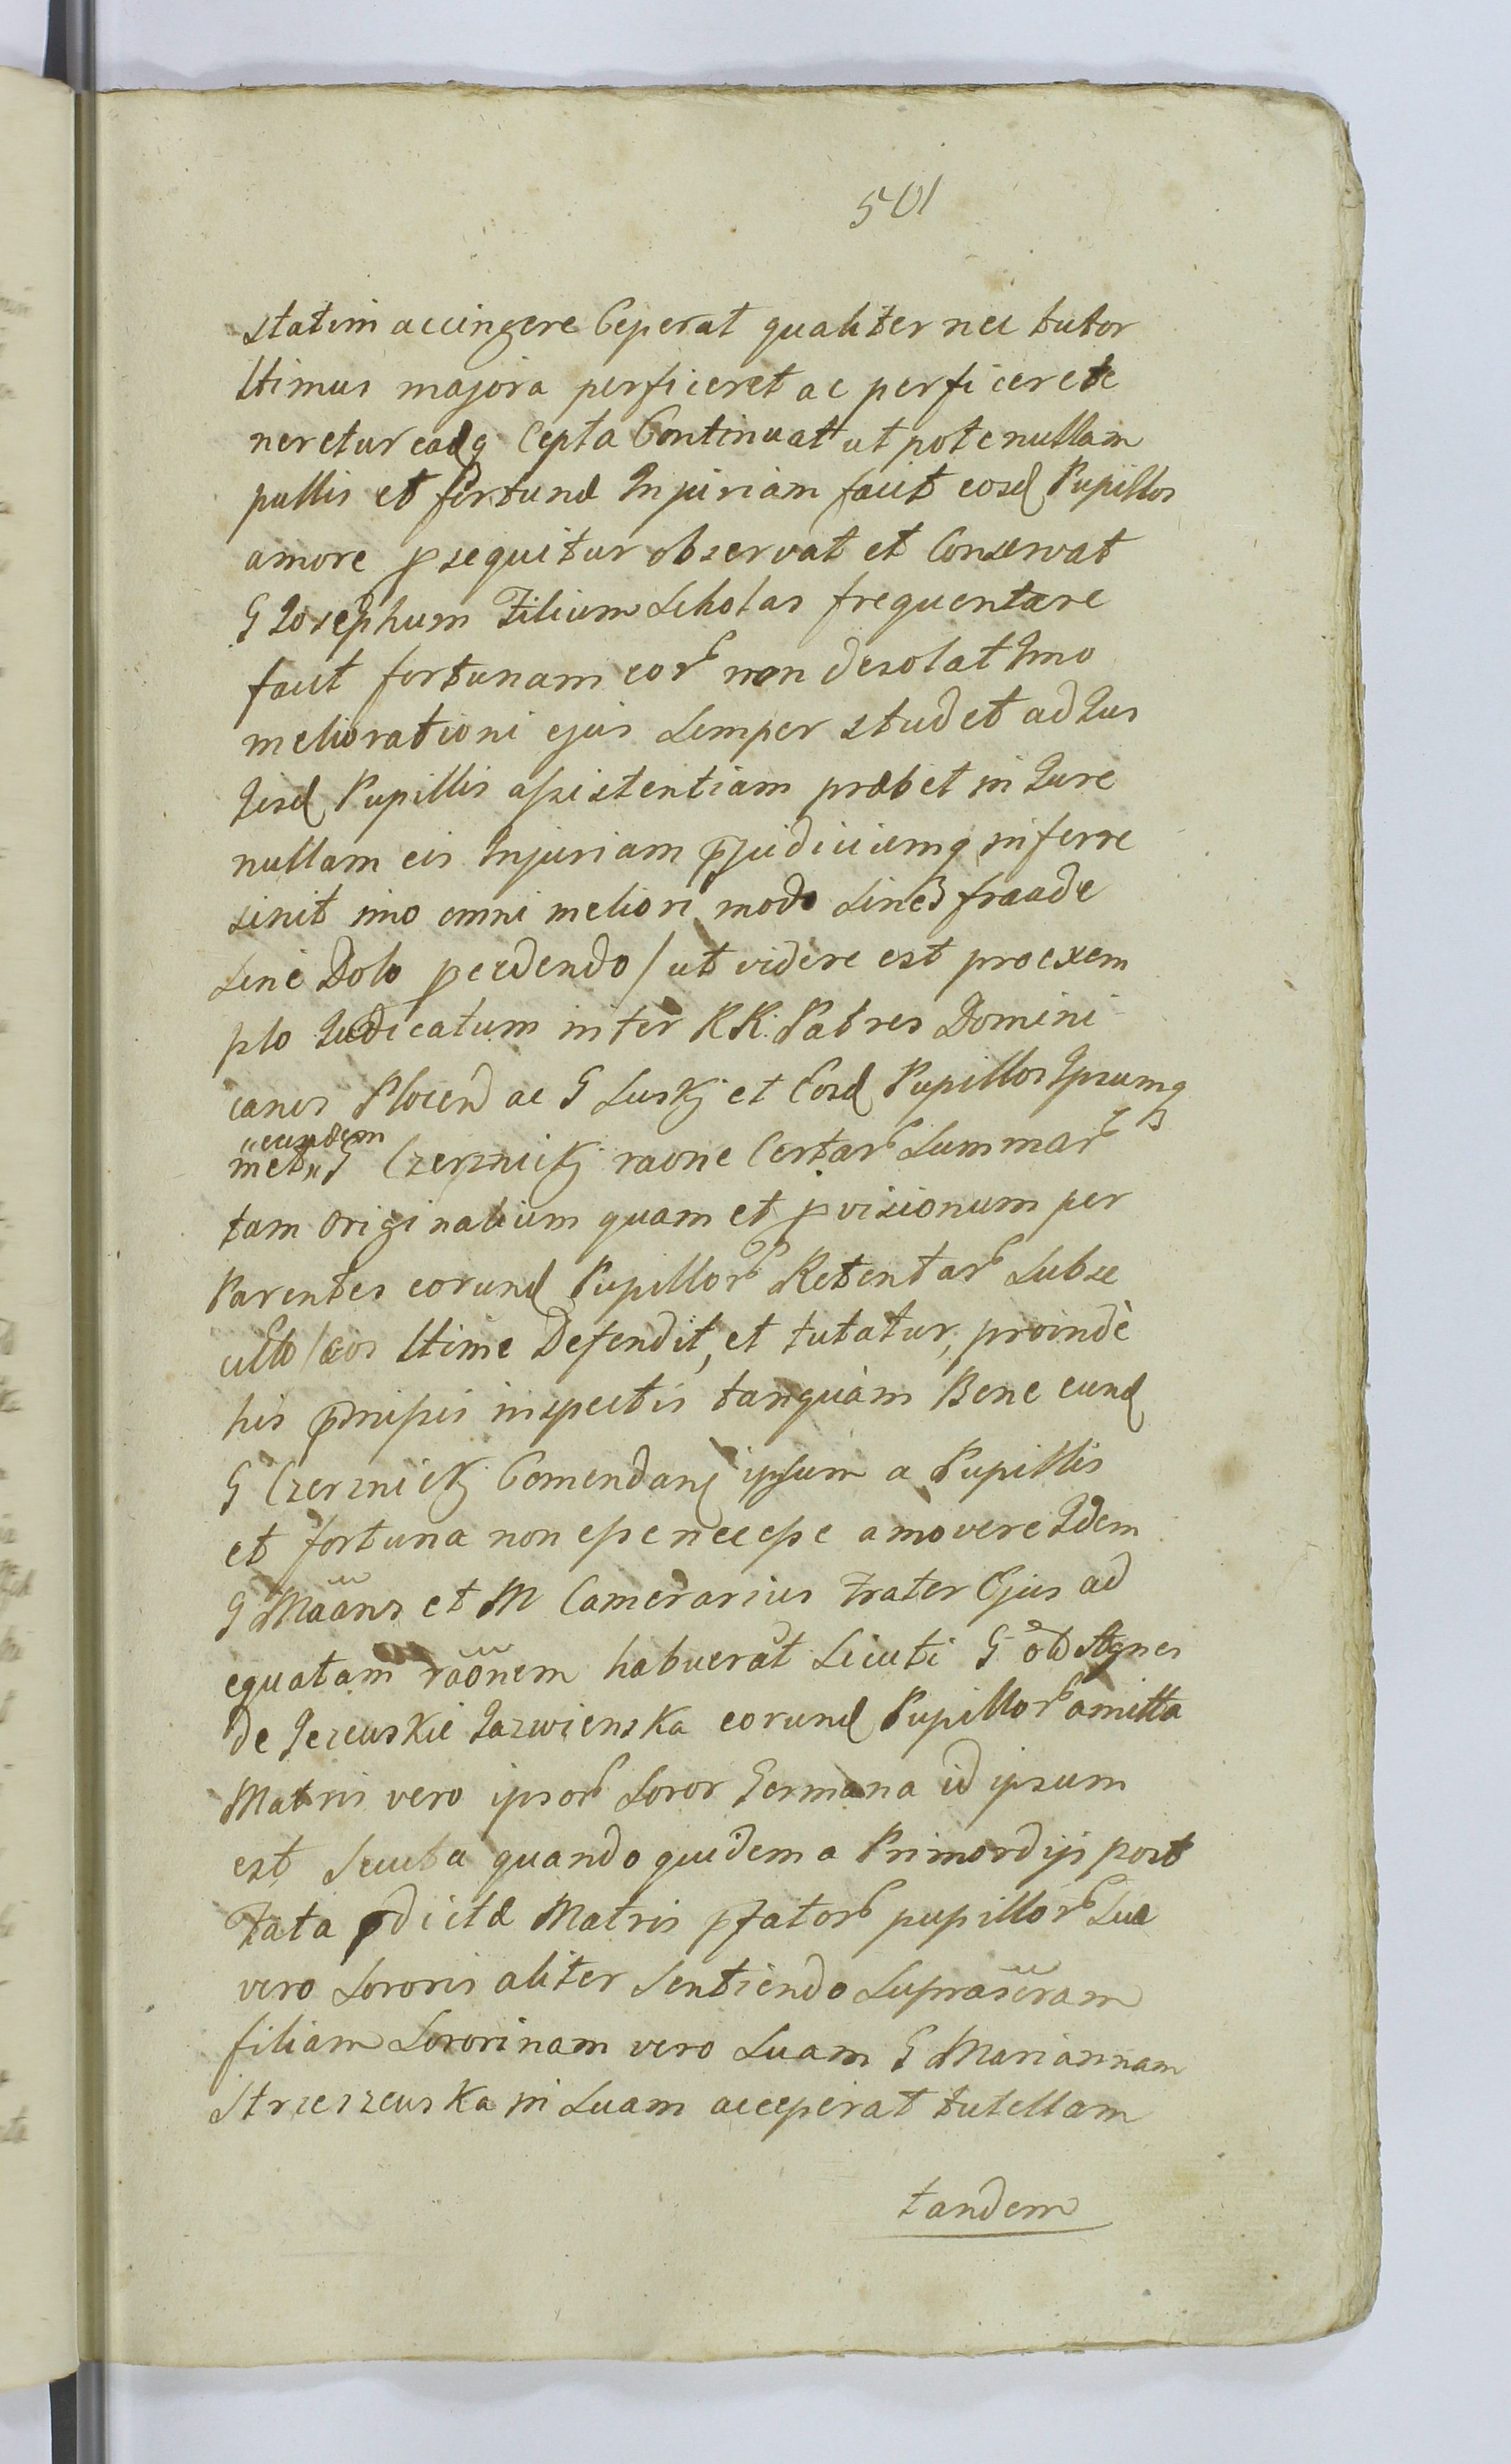 501
statim accingere Ceperat qualiter nec tutor
ltimus majora perficeret ac perficere te
neretur eadq Cepta Continuat ut pote nullam
pullis et fortunæ Injuriam facit eosd Pupillos
amore psequitur observat et Conservat
G Josephum Filium Scholas frequentare
facit fortunam eor non desolat Imo
meliorationi ejus Semper studet ad Jus
Iisd Pupillis assistentiam præbet in Jure
nullam eis Injuriam pjudiciumq inferre
sinit imo omni meliori modo Sine fraude
Sine Dolo pcedendo / ut videre est pro exem
plo Judicatum inter RR: Patres Domini
canos Plocen ac G Luskj et Eosd Pupillos Ipsumq
met eundem G Czerznickj raone Certar Summar
tam originalium quam et pvisionum per
Parentes eorund Pupillor Retentar Subse
cuto / eos ltime Defendit, et tutatur, proindè
his pmissis inspectis tanquam Bene eund
G Czerznickj Comendan ipsum a Pupillis
et fortuna non esse necesse amovere Idem
G Maans et M Camerarius Frater Ejus ad
equatam raonem habuerat Sicuti G olo Agnes
de Jezewskie Jazwienska eorund Pupillor amitta
Matris vero ipsor Soror Germana id ipsum
est Secuta quandoquidem a Primordijs post
Fata pdictæ Matris pfator pupillor Suæ
vero Sororis aliter Sentiendo Suprascram
filiam Sororinam vero Suam G Mariannam
Strzeszewska in Suam acceperat tutellam
tandem